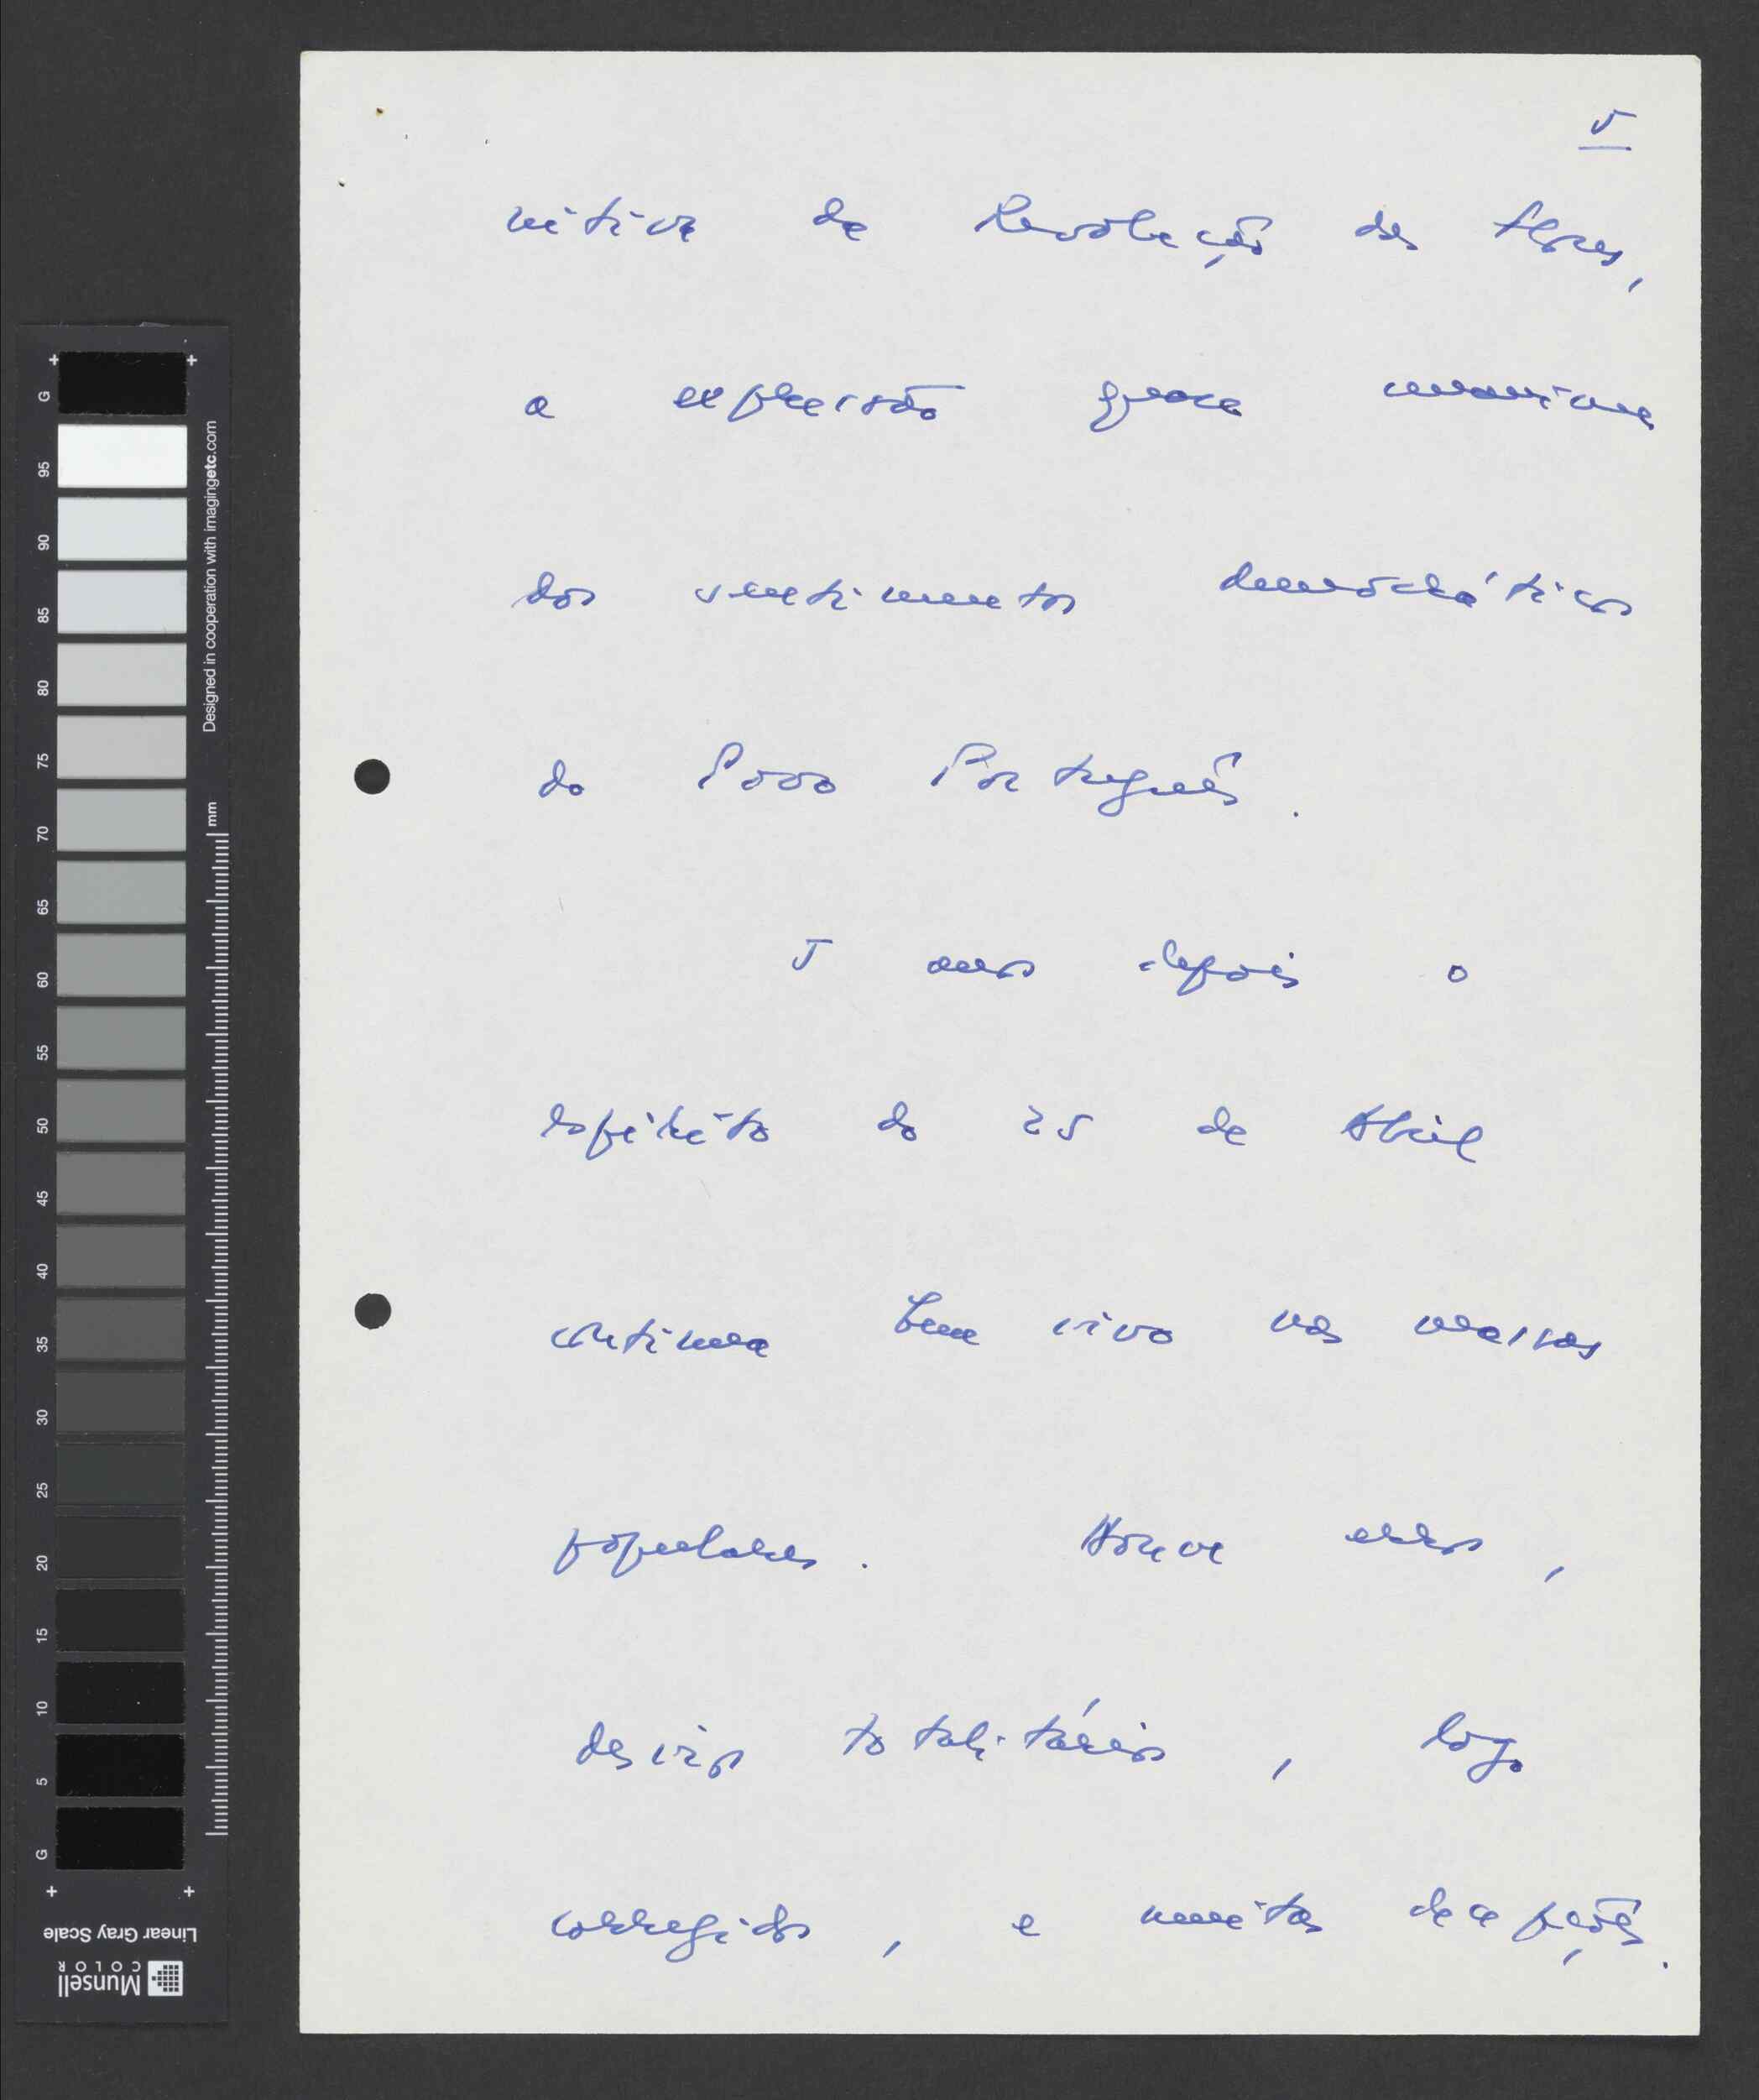 5
nitiva da Revolução das flores,
a expressão quase unanime
dos sentimentos democráticos
do Povo Português.
5 anos depois o
espírito do 25 de Abril
continua bem vivo nas massas
populares. Houve erros,
desvios totalitários, logo
corregidos, e muitas decepções.
G
95
90
85
80
75
70
65
60
55
50
45
40
35
30
25
20
15
10
5
G
Designed in cooperation with imagingetc.com
mm
Linear Gray Scale
Munsell
COLOR